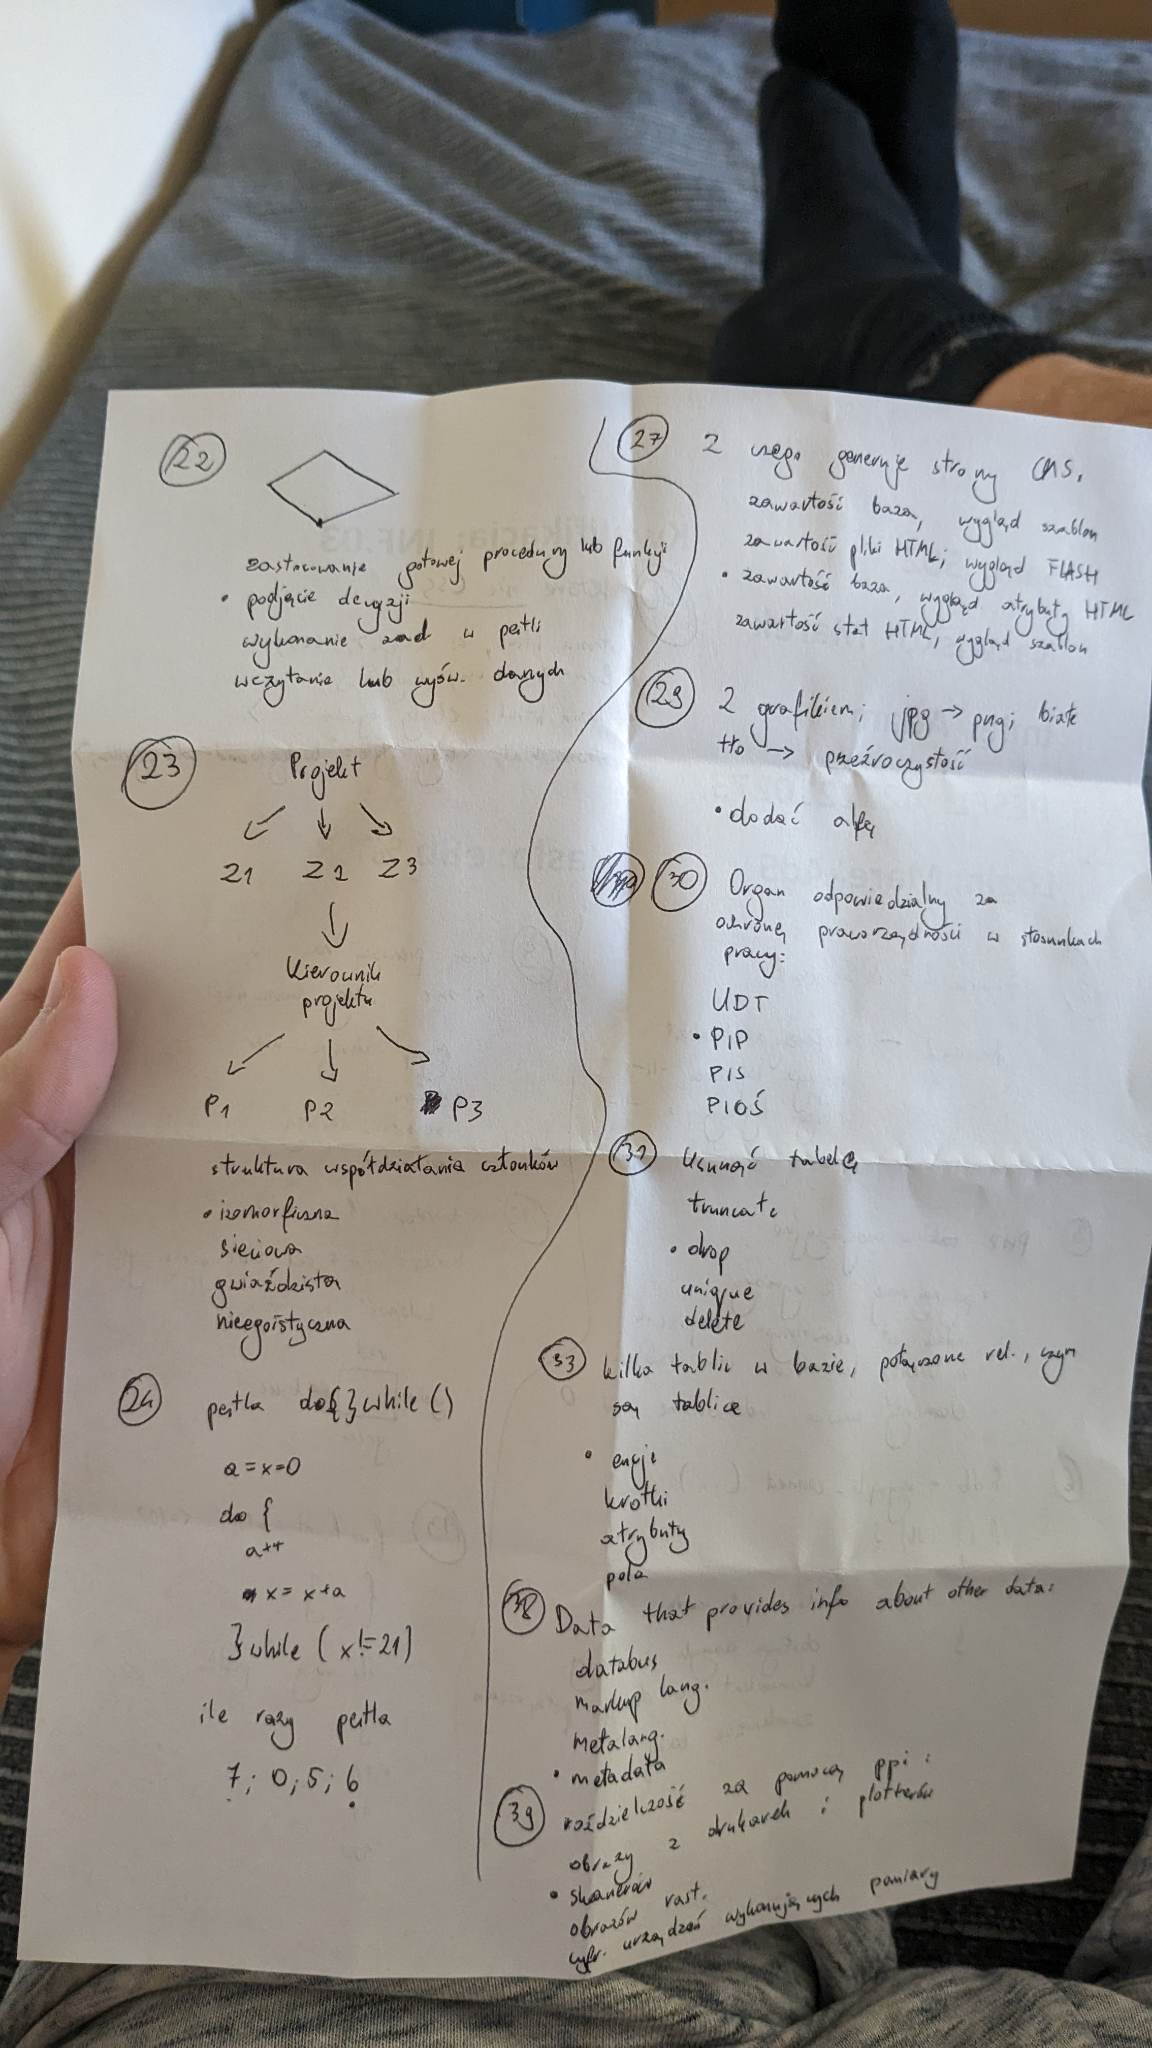 22
zastosowanie gotowej procedury lub funkcji
• podjęcie decyzji
wykonanie zad w pętli
wczytanie lub wyśw. danych
23
Projekt
Z1 Z2 Z3
Kierownik
projektu
P1 P2 P3
struktura współdziałania członków
• izomorficzna
sieciowa
gwiaździsta
nieegoistyczna
24
pętla do{}while()
a=x=0
do {
a++
x=x+a
}while (x!=21)
ile razy pętla
7; 0; 5; 6
27
Z czego generuje strony CMS.
zawartość baza, wygląd szablon
zawartość pliki HTML; wygląd FLASH
• zawartość baza, wygląd atrybuty HTML
zawartość stat HTML, wygląd szablon
29
Z grafikiem; jpg → png; białe
tło → przeźroczystość
• dodać alfę
30
Organ odpowiedzialny za
ochronę praworządności w stosunkach
pracy:
UDT
• PIP
PIS
PIOŚ
Usunąć tabelę
truncate
• drop
unique
delete
33
kilka tablic w bazie, połączone rel., czym
są tablice
• encje
krotki
atrybuty
pola
38
Data that provides info about other data:
databus
markup lang.
metalang.
• metadata
39
roździelczość za pomocą ppi:
obrazy z drukarek i ploterów
• skanerów
obrazów rast.
cyfr. urządzeń wykonujących pomiary